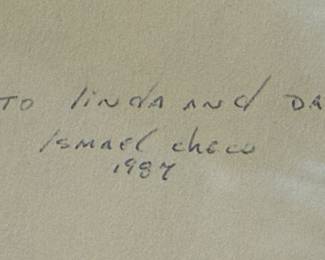 TO linda and DA
Ismael checo
1987